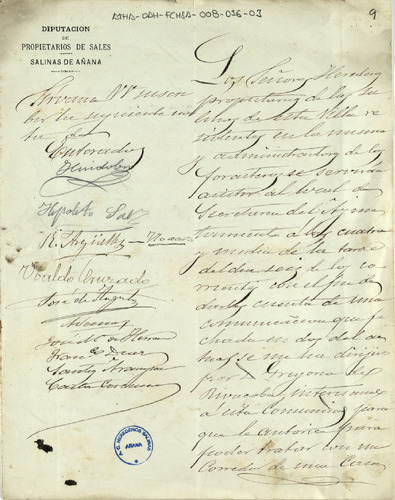 ATHA-DAH-FCMSA-008-036-03
9
DIPUTACION
DE
PROPIETARIOS DE SALES
DE
SALINAS DE AÑANA
Sirvanse
Enterado
Huidobro
Hypolito Saez
R. Argüelles
Ubaldo Cruzado
José de
Los Señores Herederos
propietarios de las Sa
linas de esta Villa re
sidentes en la misma
y administradores de los
forasteros se servirán
asistir al local de
Secretaria del Ayun
tamiento a las cuatro
y media de la tarde
del dia seis de los co
rrientes con el fin de
darles cuenta de una
comunicacion que fe
chada en dos del ac
tual se me ha dirijido
por D. Gregorio del
Rivacoba interesando
á esta Comunidad para
que le autorice para
poder tratar con un
Corredor de una Casa
AÑANA